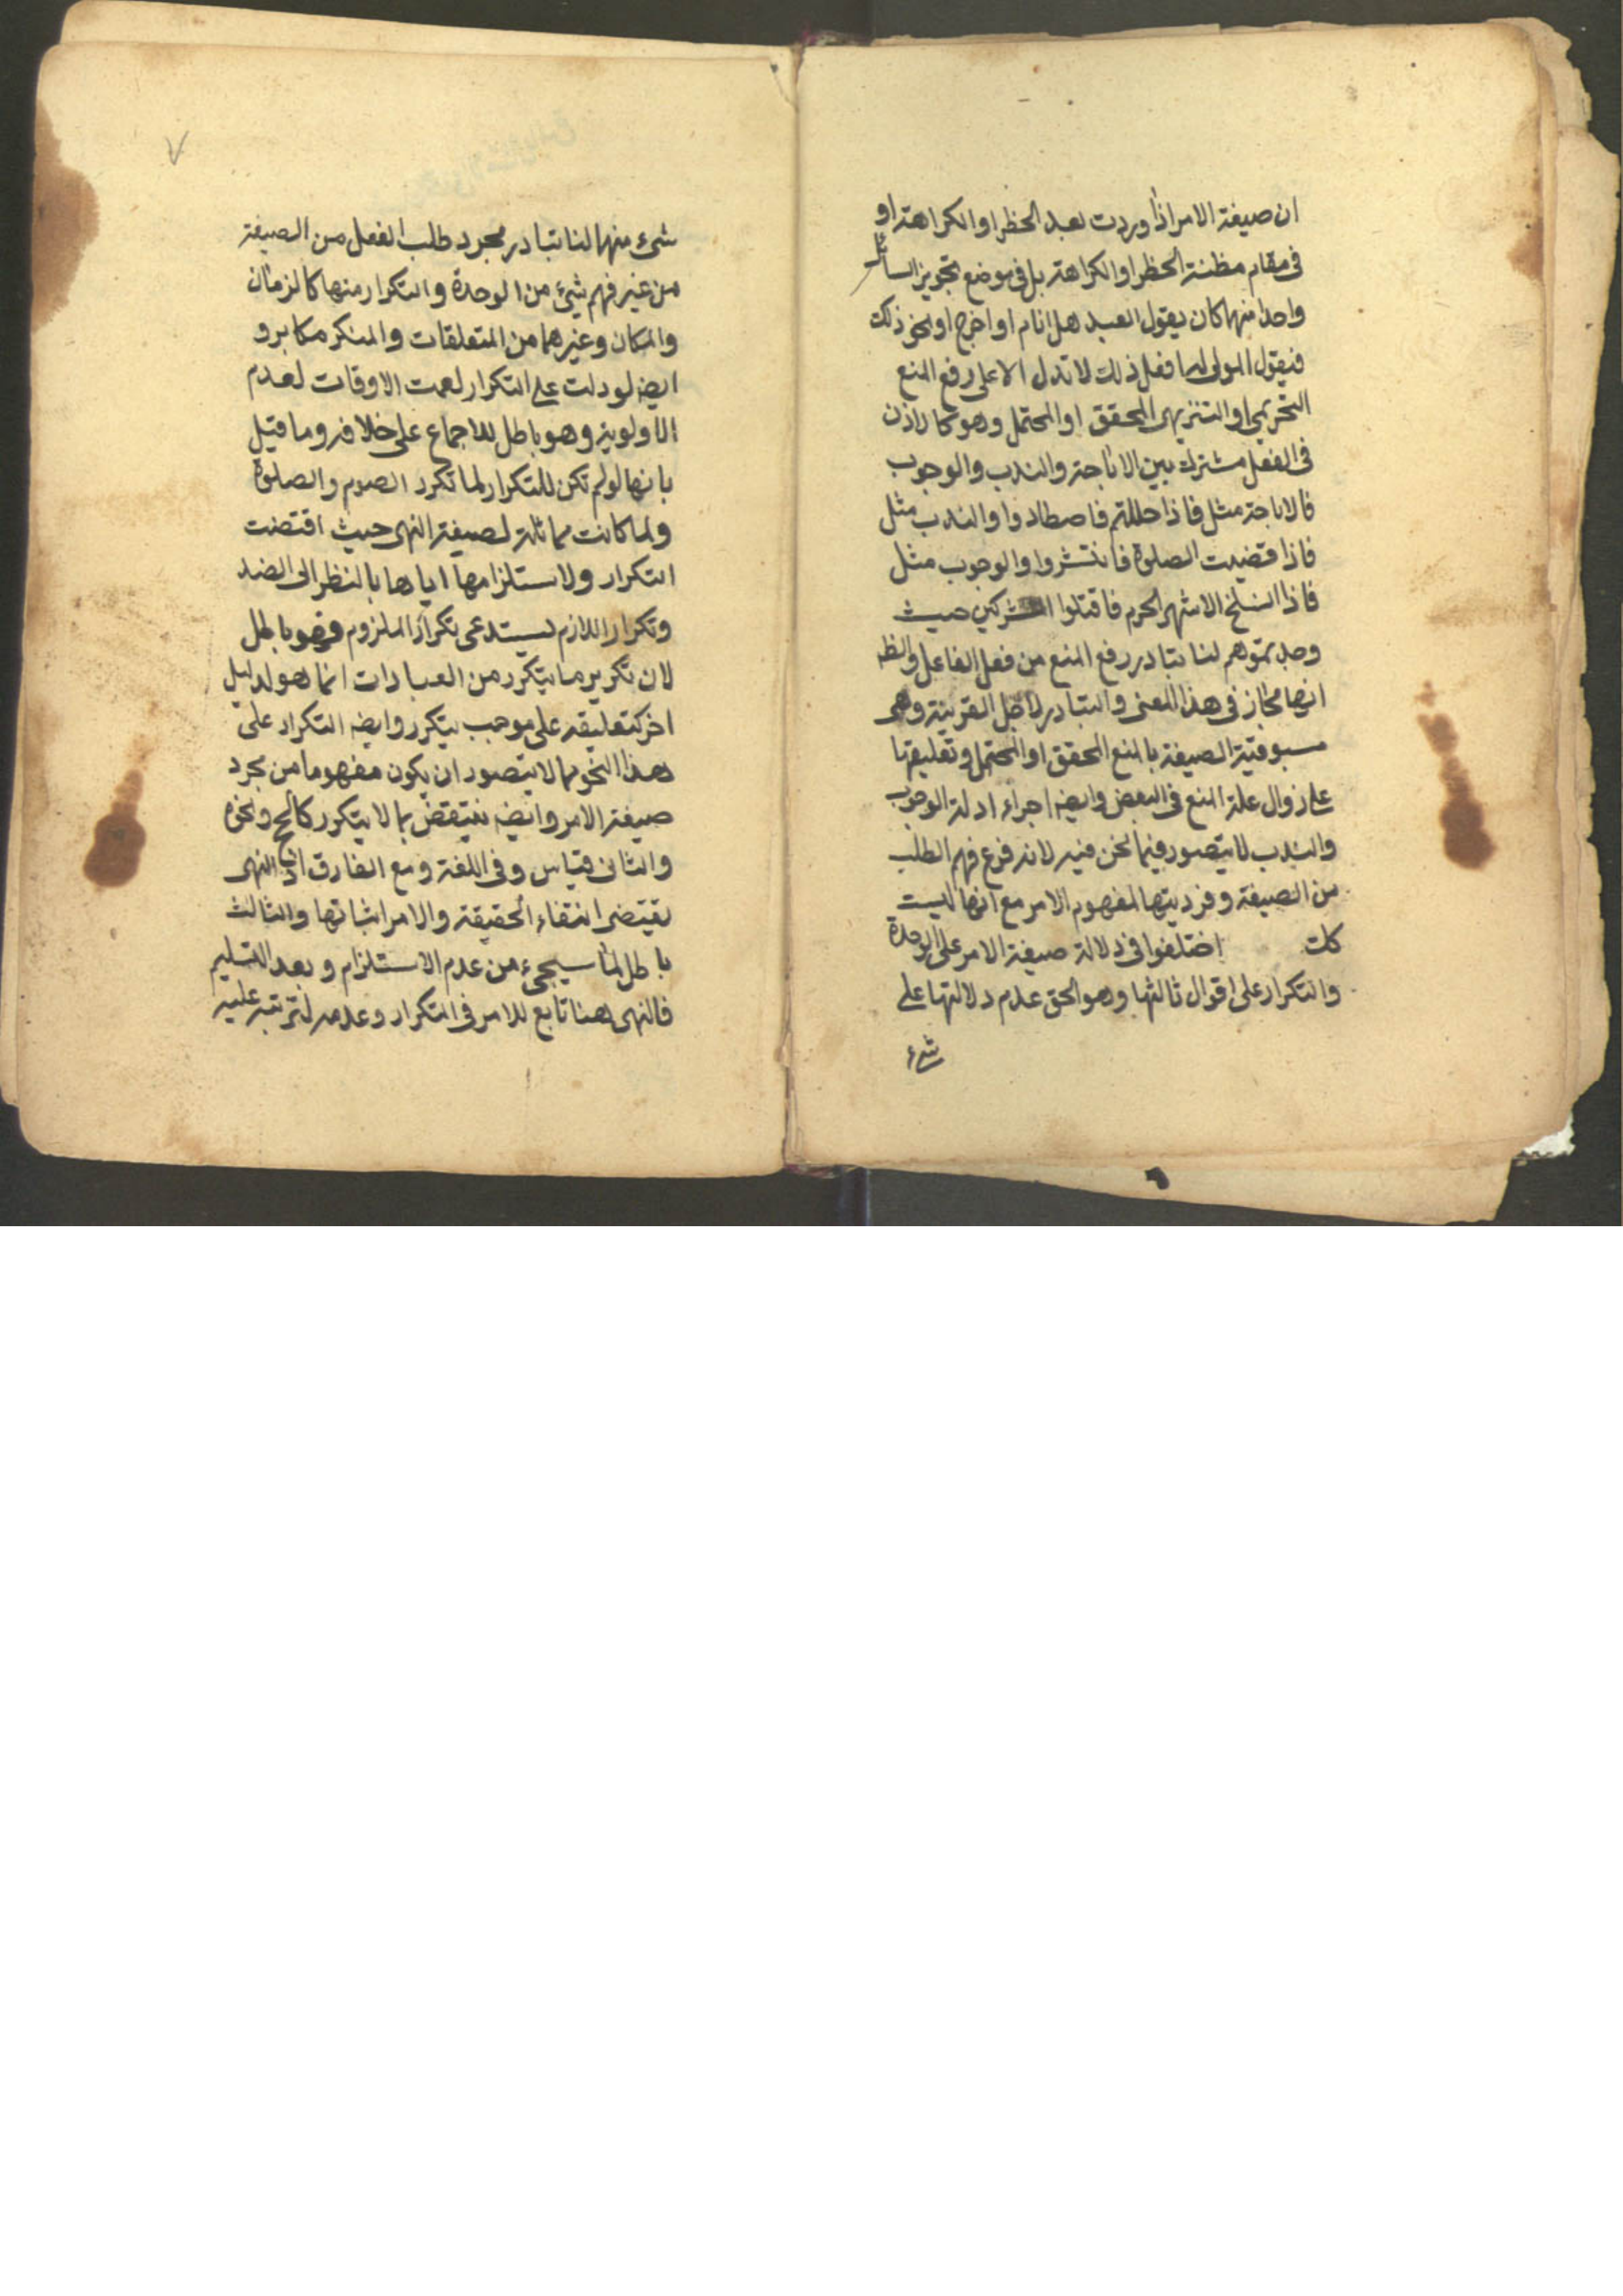 ان صيغة الامر اذا وردت بعد الحظر او الكراهة او
فى مقام مظنة الحظر او الكراهة بل فى موضع تجويز السائل
واحدا منهما كان يقول العبد هل انام او اخرج او نحو ذلك
فيقول المولى له افعل ذلك لا تدل الا على رفع المنع
التحريمى او التنزيهى المحقق او المحتمل وهو كالاذن
فى الفعل مشترك بين الاباحة والندب والوجوب
فالاباحة مثل فاذا حللتم فاصطادوا والندب مثل
فاذا قضيت الصلوة فانتشروا والوجوب مثل
فاذا انسلخ الاشهر الحرم فاقتلوا المشركين حيث
وجدتموهم لنا تبادر رفع المنع من فعل الفاعل والظ
انها مجاز فى هذا المعنى والتبادر لاجل القرينة وهى
مسبوقية الصيغة بالمنع المحقق او المحتمل وتعليقها
على زوال علة المنع فى البعض وايضه اجراء ادلة الوجوب
والندب لا يتصور فيما نحن فيه لانه فرع فهم الطلب
من الصيغة وفرديتها لمفهوم الامر مع انها ليست
كك اختلفوا فى دلالة صيغة الامر على الوحدة
والتكرار على اقوال ثالثها وهو الحق عدم دلالتها على
شىء
٧
شىء منهما لنا تبادر مجرد طلب الفعل من الصيغة
من غير فهم شئ من الوحدة والتكرار منها كالزمان
والمكان وغيرهما من المتعلقات والمنكر مكابر و
ايضه لو دلت على التكرار لعمت الاوقات لعدم
الاولوية وهو باطل للاجماع على خلافه وما قيل
بانها لو لم تكن للتكرار لما تكرر الصوم والصلوة
ولما كانت مماثلة لصيغة النهى حيث اقتضت
التكرار ولاستلزامها اياها بالنظر الى الضد
وتكرار اللازم يستدعى تكرار الملزوم فهو باطل
لان تكرير ما يتكرر من العبادات انما هو لدليل
اخر كتعليقه على موجب يتكرر وايضه التكرار على
هذا النحو مما لا يتصور ان يكون مفهوما من مجرد
صيغة الامر وايضه ينتقض بما لا يتكرر كالحج ونحوه
والثانى قياس وفى اللغة ومع الفارق اذ النهى
يقتضى انتفاء الحقيقة والامر اثباتها والثالث
باطل لما سيجىء من عدم الاستلزام وبعد التسليم
فالنهى هنا تابع للامر فى التكرار وعدمه لترتبه عليه